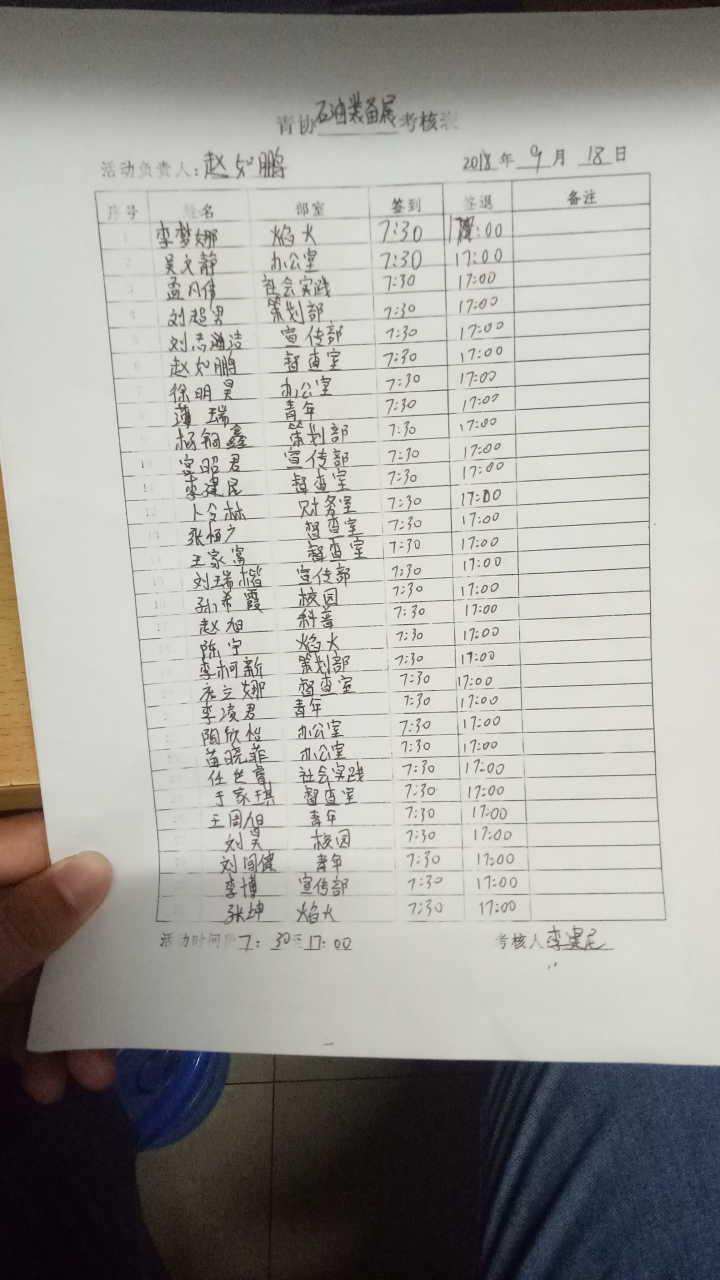 青协石油装备展考核表
活动负责人：赵如鹏 2018年 9月 18日
序号 姓名 部室 签到 签退 备注
1 李梦娜 焰火 7:30 17:00
2 吴文静 办公室 7:30 17:00
3 孟凡伟 社会实践 7:30 17:00
4 刘超男 策划部 7:30 17:00
5 刘志海洁 宣传部 7:30 17:00
6 赵如鹏 督查室 7:30 17:00
7 徐明昊 办公室 7:30 17:00
薄瑞 青年 7:30 17:00
杨钢鑫 策划部 7:30 17:00
10 宫昭君 宣传部 7:30 17:00
李建尼 督查室 7:30 17:00
卜令林 财务室 7:30 17:00
张恒广 督查室 7:30 17:00
王家富 督查室 7:30 17:00
刘瑞楷 宣传部 7:30 17:00
孙希霞 校园 7:30 17:00
赵旭 科普 7:30 17:00
陈宇 焰火 7:30 17:00
李柯新 策划部 7:30 17:00
立娜 督查室 7:30 17:00
李凌君 青年 7:30 17:00
陶欣怡 办公室 7:30 17:00
苗晓菲 办公室 7:30 17:00
任世睿 社会实践 7:30 17:00
于家琪 督查室 7:30 17:00
王周旭 青年 7:30 17:00
刘昊 校园 7:30 17:00
刘同健 青年 7:30 17:00
李博 宣传部 7:30 17:00
张坤 焰火 7:30 17:00
活动时间段 7：30至17：00 考核人 李建尼